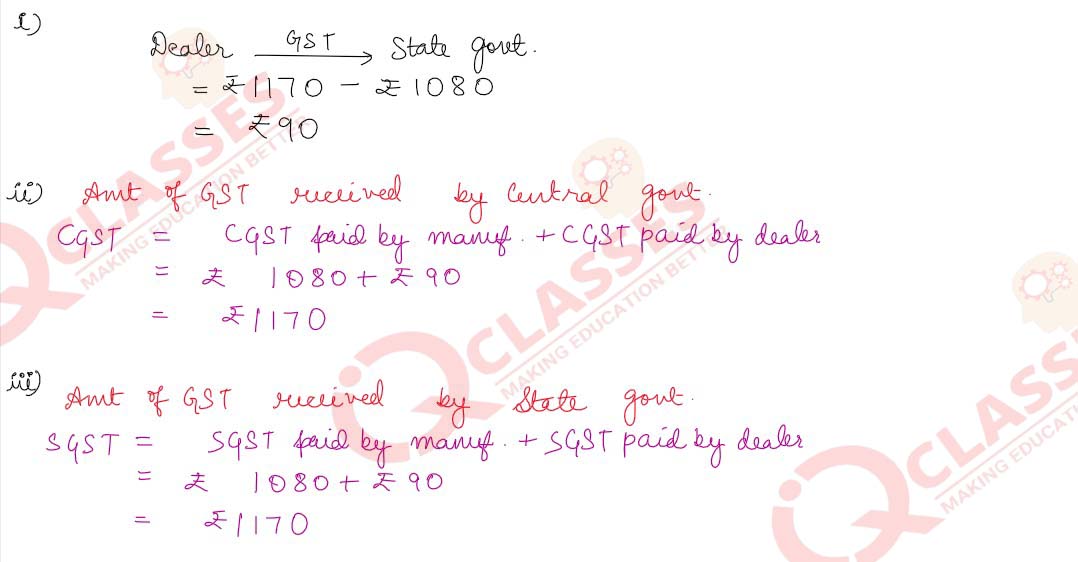 i)
Dealer GST → State govt.
= ₹1170 - ₹1080
= ₹90
ii) Amt of GST received by Central govt.
CGST = CGST paid by manuf. + CGST paid by dealer
= ₹ 1080 + ₹90
= ₹1170
iii) Amt of GST received by State govt.
SGST = SGST paid by manuf. + SGST paid by dealer
= ₹ 1080 + ₹90
= ₹1170
CLASSES
MAKING EDUCATION BETTE
QCLASSES
MAKING EDUCATION BETTE
QCLASS
MAKING EDUCAT